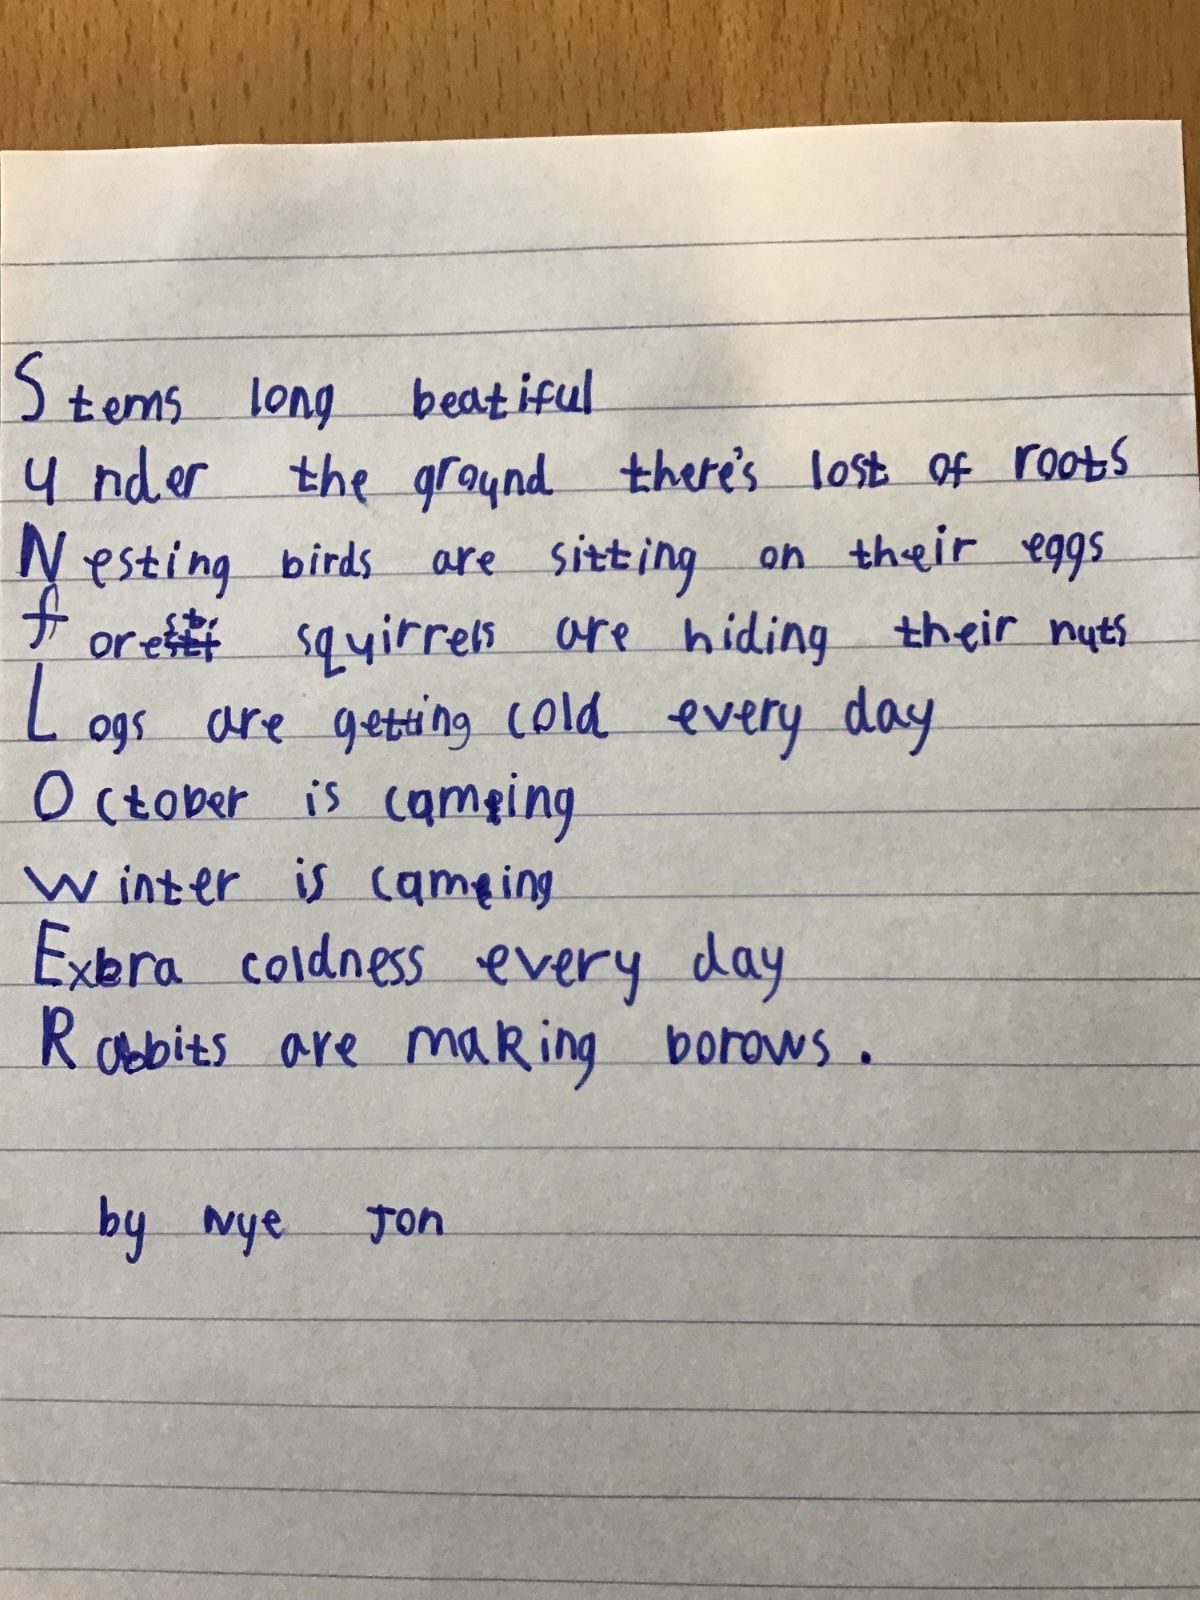 Stems long beatiful
Under the ground there's lost of roots
Nesting birds are sitting on their eggs
forest squirrels are hiding their nuts
Logs are getting cold every day
October is cameing
winter is cameing
Extra coldness every day
Rabbits are making borows.
by Nye Jon